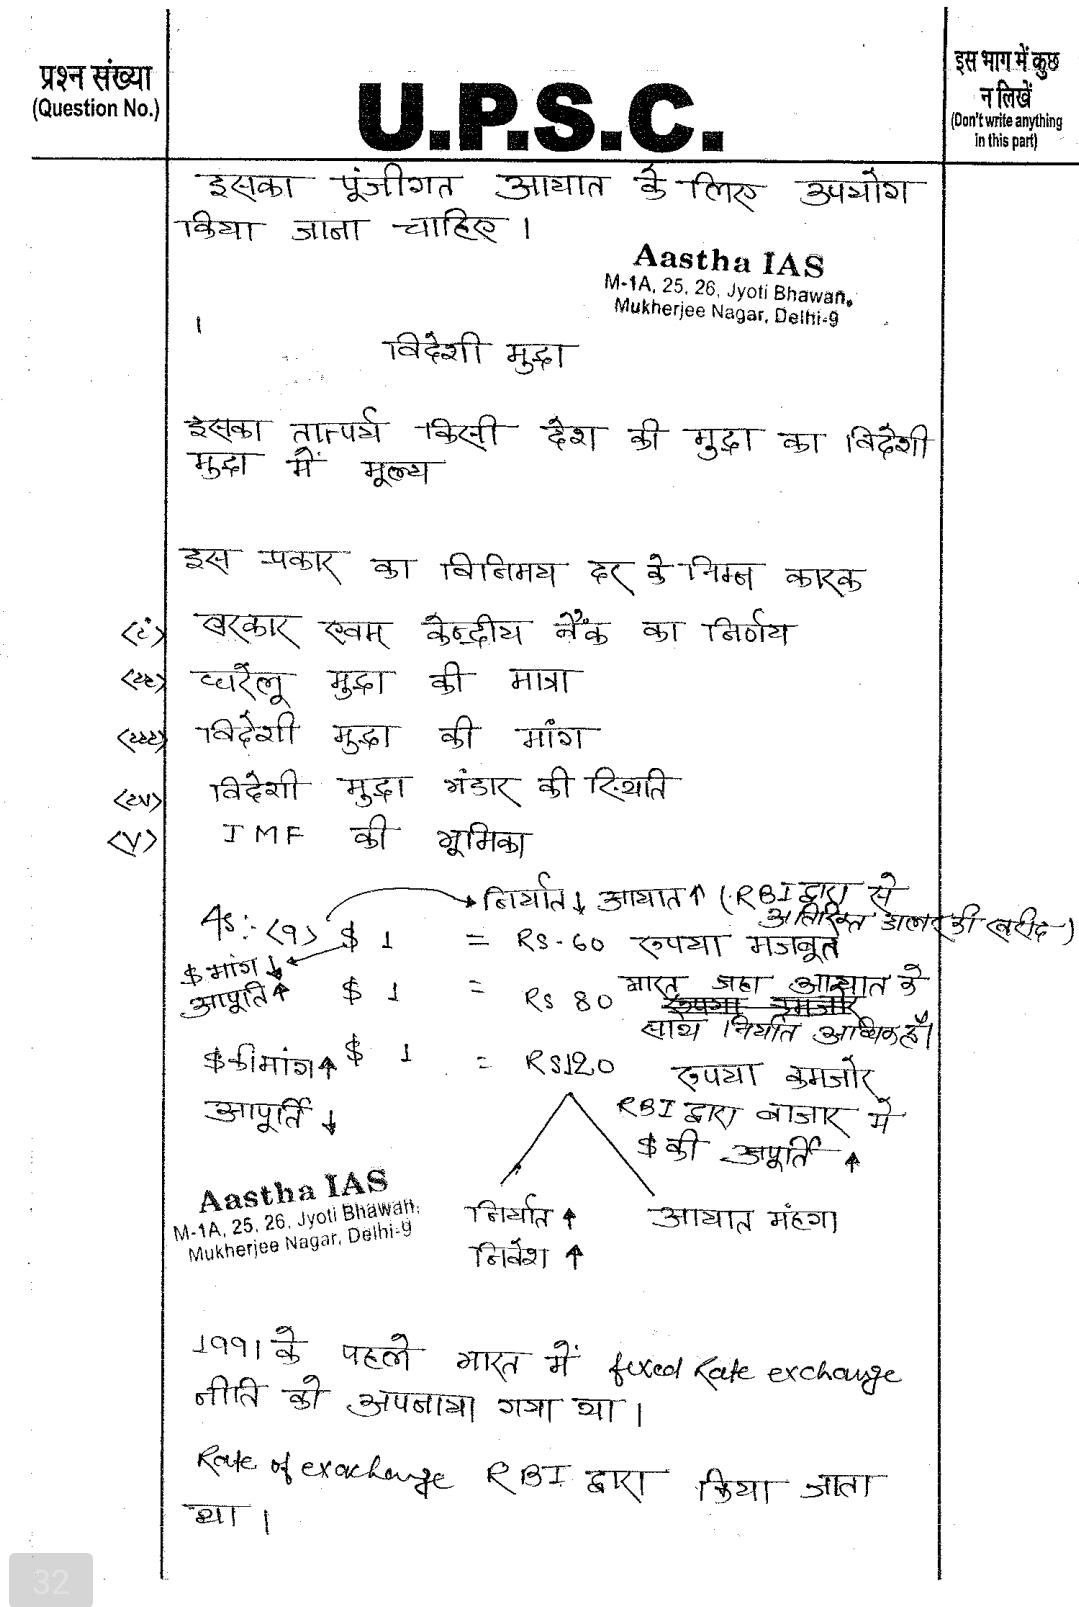 प्रश्न संख्या
(Question No.)
U.P.S.C.
इस भाग में कुछ
न लिखें
(Don't write anything
in this part)
इसका पूंजीगत आयात के लिए उपयोग
किया जाना चाहिए ।
Aastha IAS
M-1A, 25, 26, Jyoti Bhawan,
Mukherjee Nagar, Delhi-9
विदेशी मुद्रा
इसका तात्पर्य किसी देश की मुद्रा का विदेशी
मुद्रा में मूल्य
इस प्रकार का विनिमय दर के निम्न कारक
(i) सरकार एवम् केन्द्रीय बैंक का निर्णय
(ii) घरेलू मुद्रा की मात्रा
(iii) विदेशी मुद्रा की मांग
(iv) विदेशी मुद्रा भंडार की स्थिति
(v) IMF की भूमिका
निर्यात↓ आयात↑ (RBI द्वारा से
अतिरिक्त डालर की खरीद)
As:- (१) $ 1 = RS-60 रुपया मजबूत
$ मांग ↓
आपूर्ति ↑ $ 1 = RS 80 भारत जहा आयात के
रुपया कमजोर
साथ निर्यात अधिक है।
$ की मांग ↑ $ 1 = RS120 रुपया कमजोर
आपूर्ति ↓
RBI द्वारा बाजार में
$ की आपूर्ति ↑
Aastha IAS
M-1A, 25, 26, Jyoti Bhawan,
Mukherjee Nagar, Delhi-9
निर्यात ↑ आयात मंहगा
निवेश ↑
1991 के पहले भारत में fixed Rate exchange
नीति को अपनाया गया था ।
Rate of exachange RBI द्वारा किया जाता
था ।
32